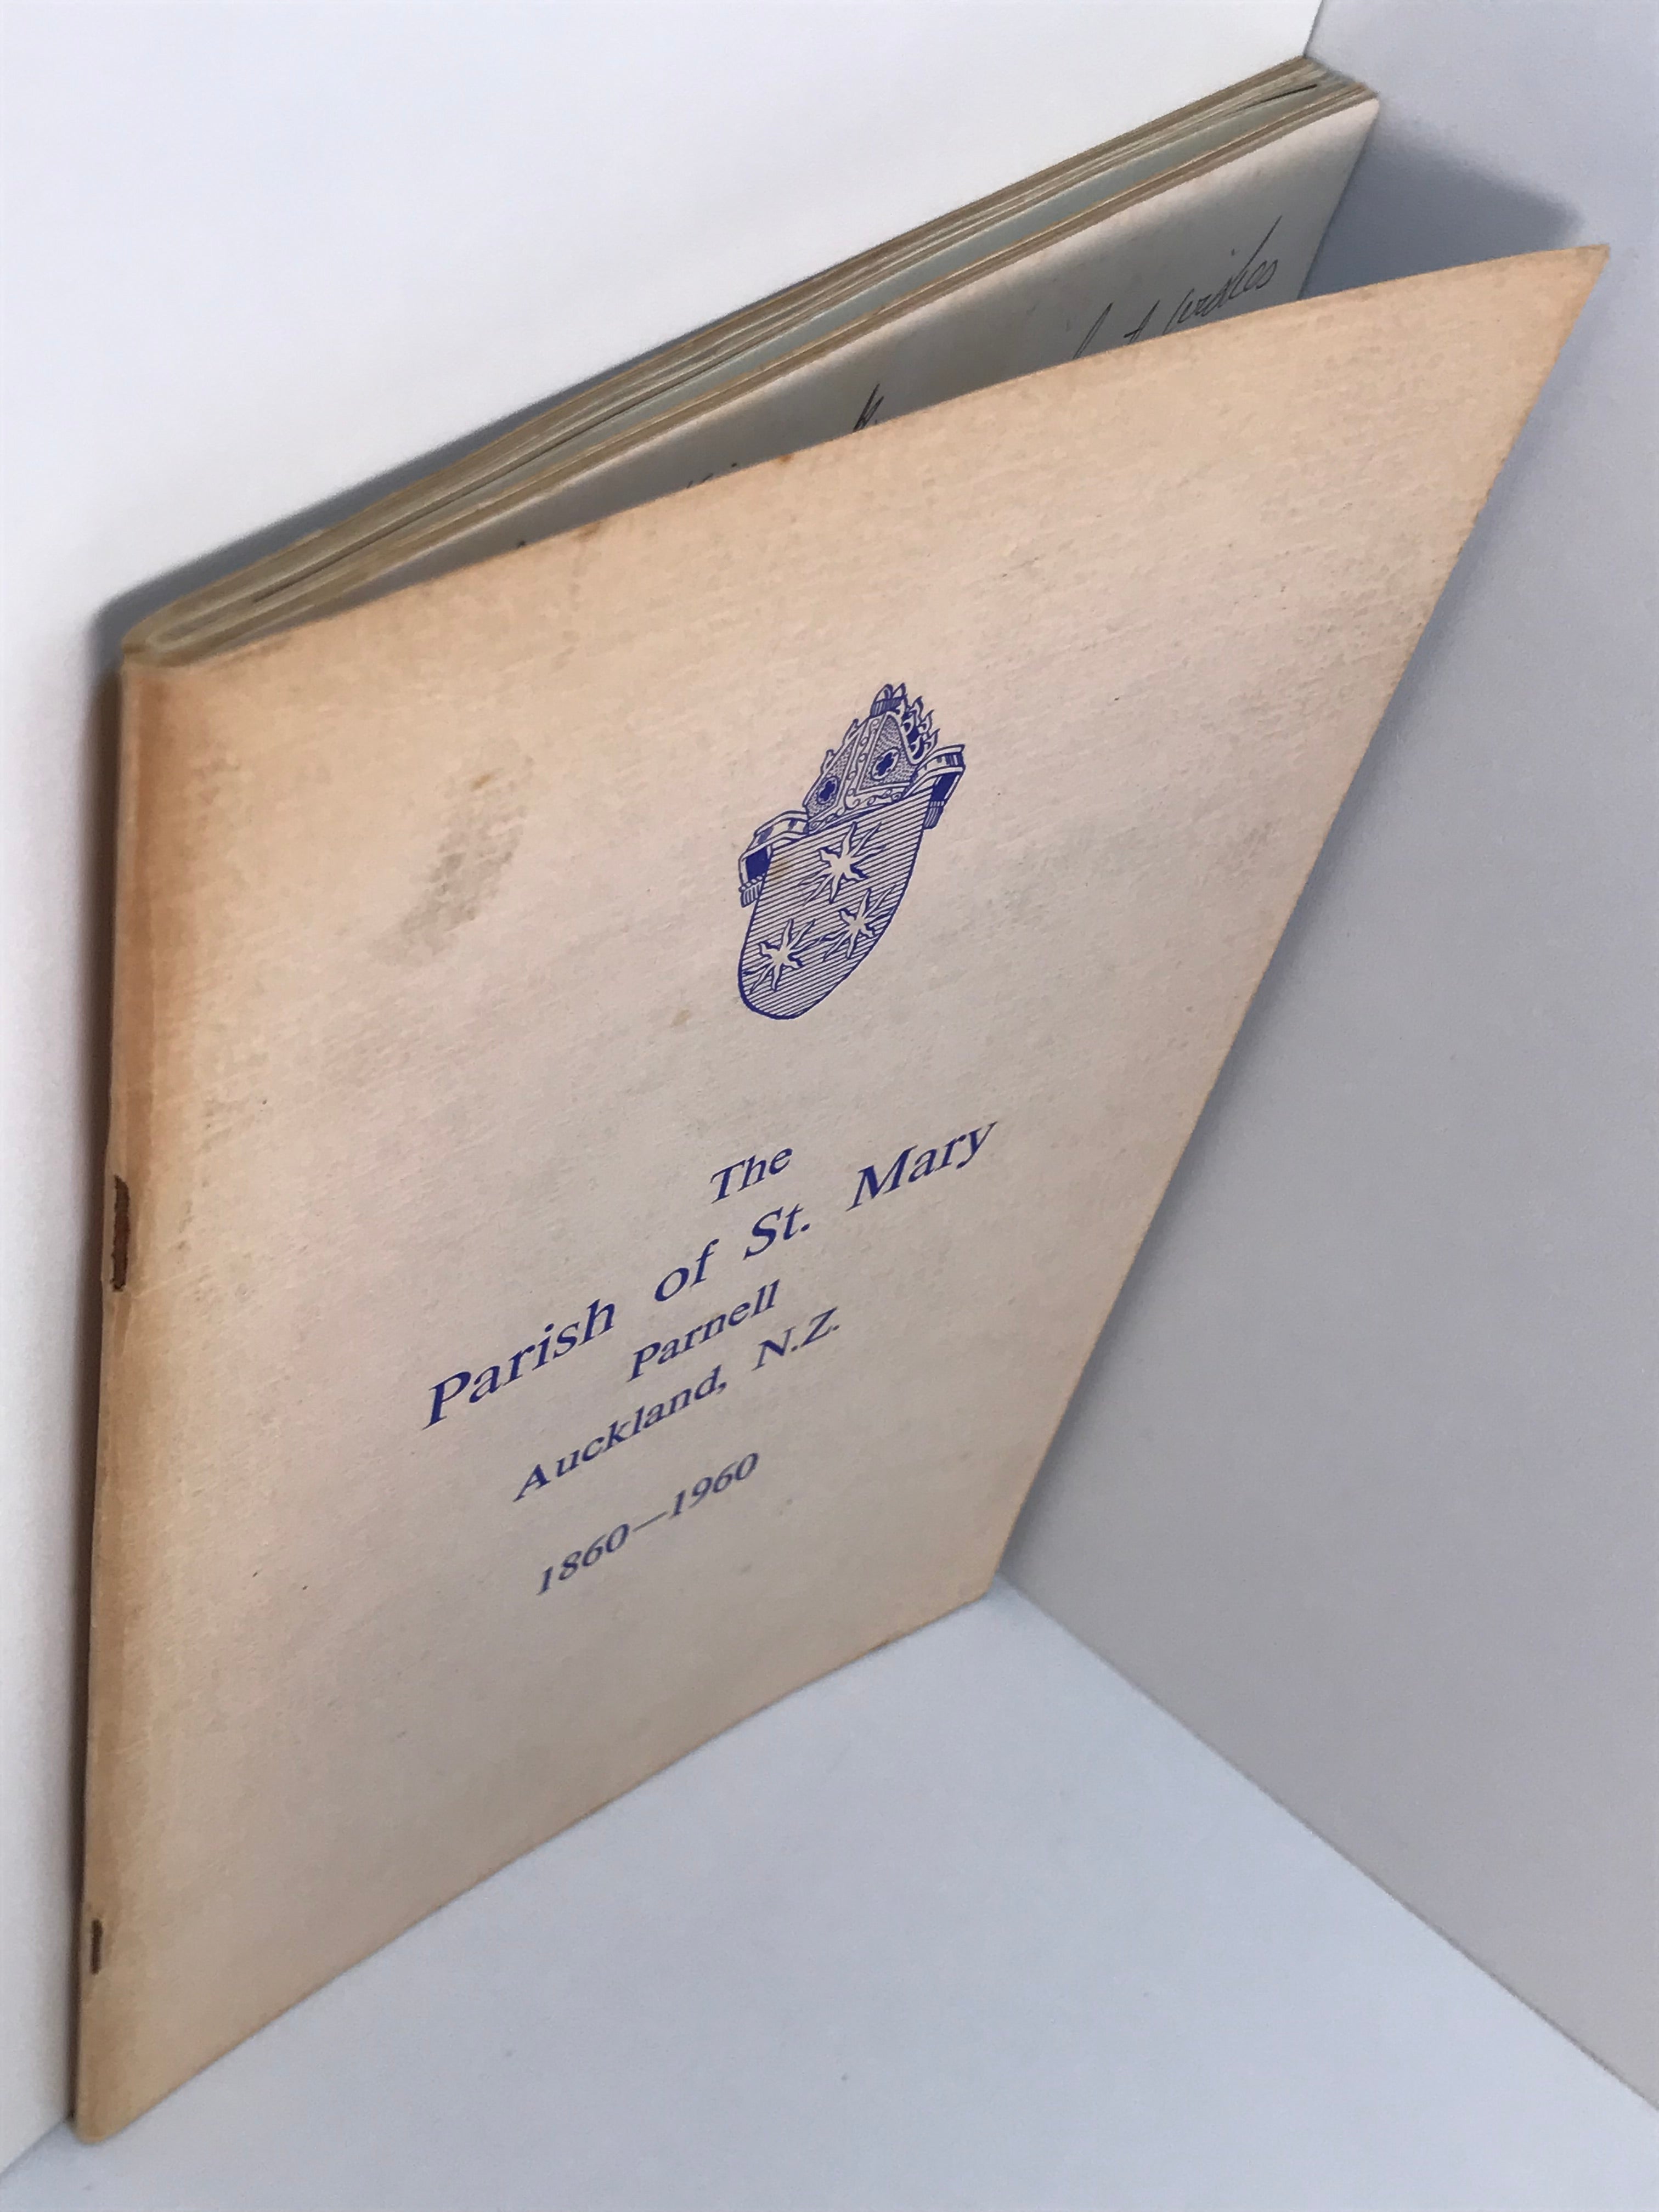 wishes
The
Parish of St. Mary
Parnell
Auckland, N.Z.
1860—1960